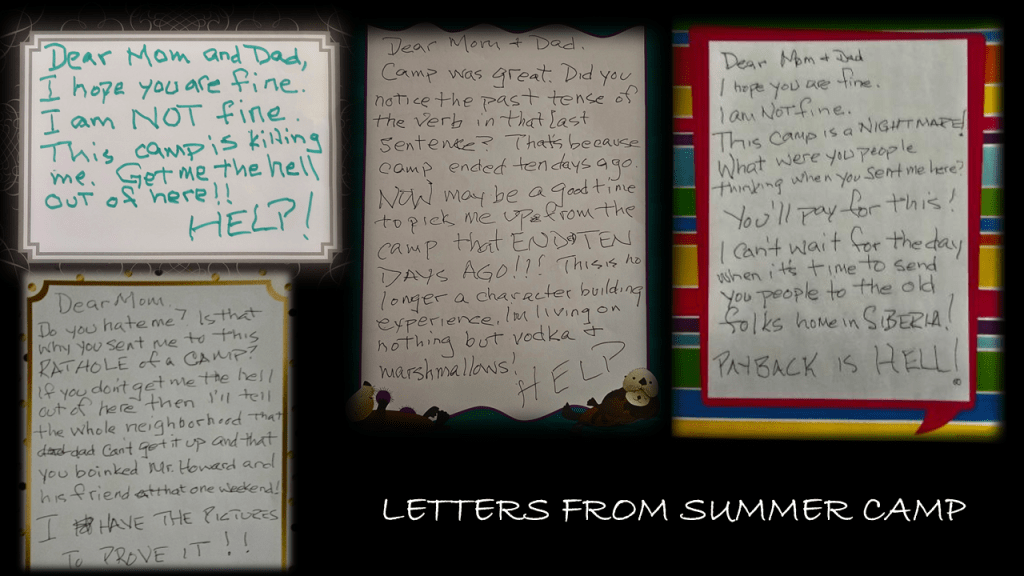 Dear Mom and Dad,
I hope you are fine.
I am NOT fine.
This camp is killing
me. Get me the hell
out of here!!
HELP!
Dear Mom.
Do you hate me? Is that
why you sent me to this
RATHOLE of a CAMP?
If you don't get me the hell
out of here then I'll tell
the whole neighborhood that
dad can't get it up and that
you boinked Mr. Howard and
his friend that one weekend!
I HAVE THE PICTURES
TO PROVE IT!!
Dear Mom + Dad.
Camp was great. Did you
notice the past tense of
the verb in that last
sentence? That's because
camp ended ten days ago.
NOW may be a good time
to pick me up from the
camp that ENDED TEN
DAYS AGO!!! This is no
longer a character building
experience, I'm living on
nothing but vodka +
marshmallows!
HELP
Dear Mom + Dad
I hope you are fine.
I am Not fine.
This camp is a NIGHTMARE!
What were you people
thinking when you sent me here?
You'll pay for this!
I can't wait for the day
when it's time to send
you people to the old
folks home in SIBERIA!
PAYBACK IS HELL!
LETTERS FROM SUMMER CAMP